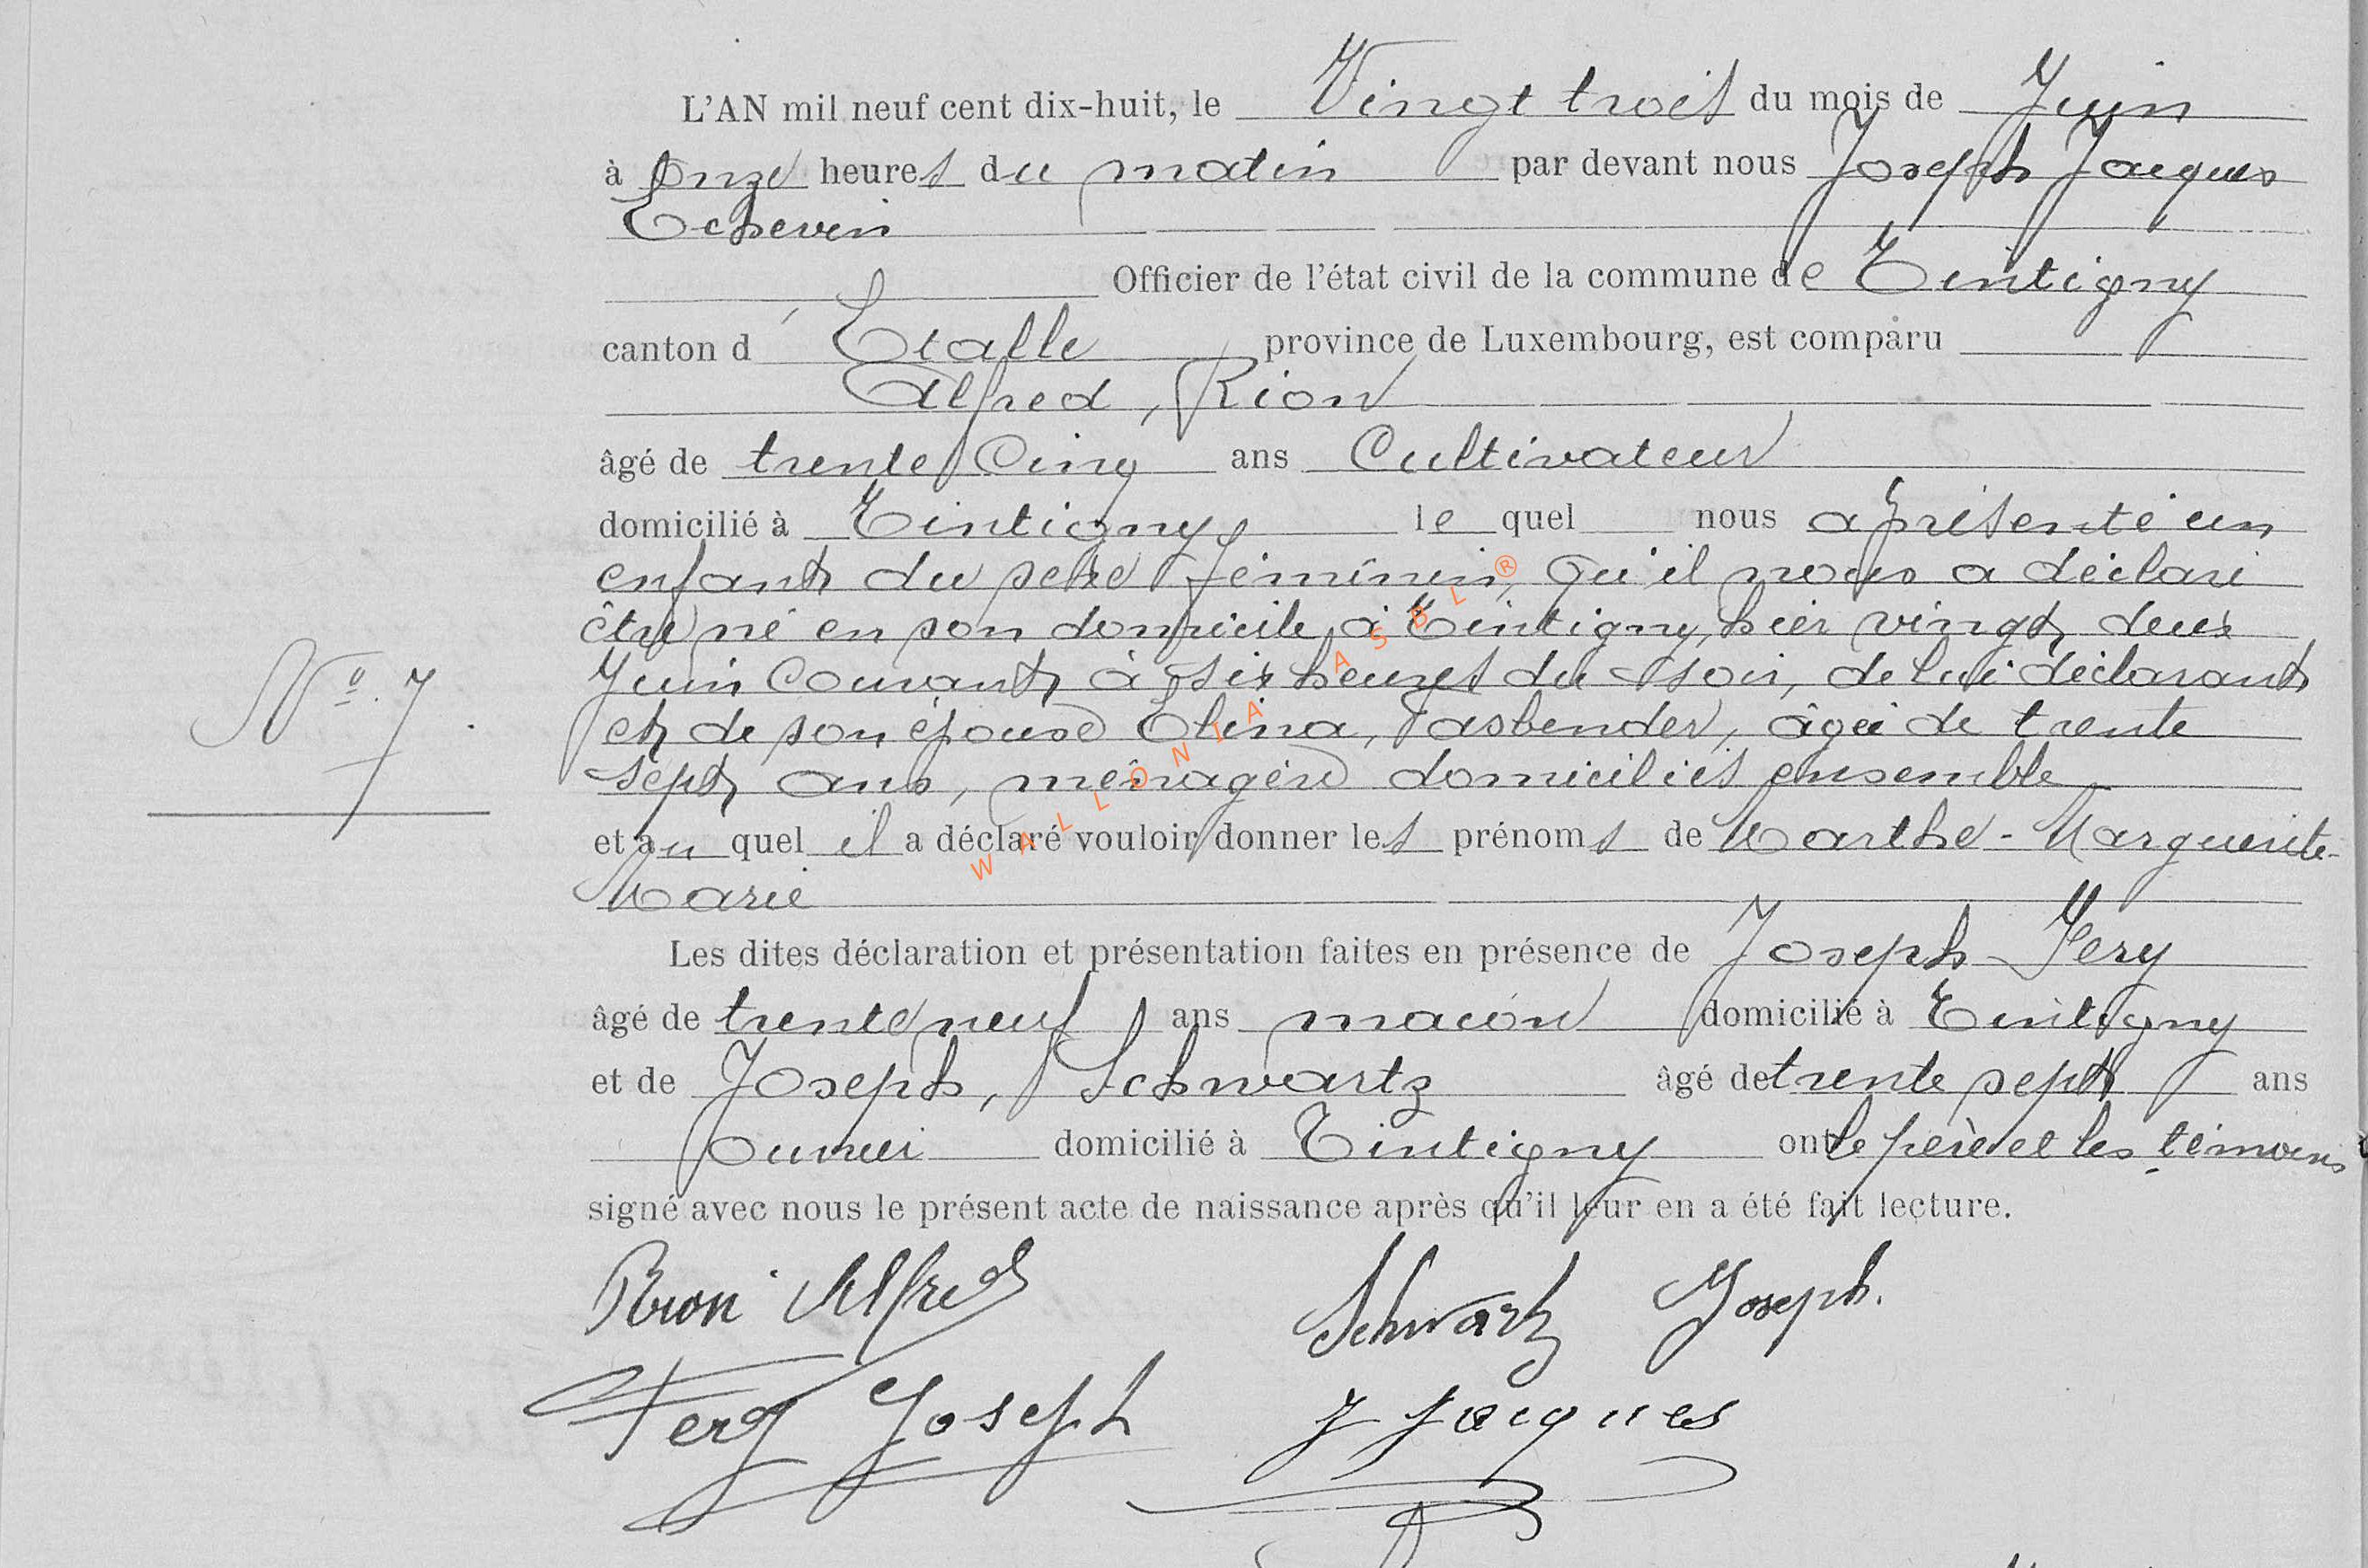 L'AN mil neuf cent dix-huit, le Vingt trois du mois de Juin
à Onze heures du matin par devant nous Joseph Jacques
Echevin
Officier de l'état civil de la commune de Tintigny
canton d' Etalle province de Luxembourg, est comparu
Alfred, Rion
âgé de trente Cinq ans Cultivateur
domicilié à Tintigny, le quel nous a présenté un
enfant du sexe féminin, qu'il nous a déclaré
être né en son domicile à Tintigny, hier vingt deux
Juin Courant à six heures du soir, de lui déclarant
et de son épouse Elina, Fasbender, âgée de trente
sept ans, ménagère domiciliés ensemble
Nº 7.
et au quel il a déclaré vouloir donner les prénoms de Marthe - Marguerite-
Marie
Les dites déclaration et présentation faites en présence de Joseph Fery
âgé de trente neuf ans macon domicilié à Tintigny
et de Joseph, Schwartz âgé de trente sept ans
ouvrier domicilié à Tintigny ont le père et les témoins
signé avec nous le présent acte de naissance après qu'il leur en a été fait lecture.
Rion Alfred
Schwartz Joseph.
Fery Joseph
J Jacques
WALLONIA ASBL ®